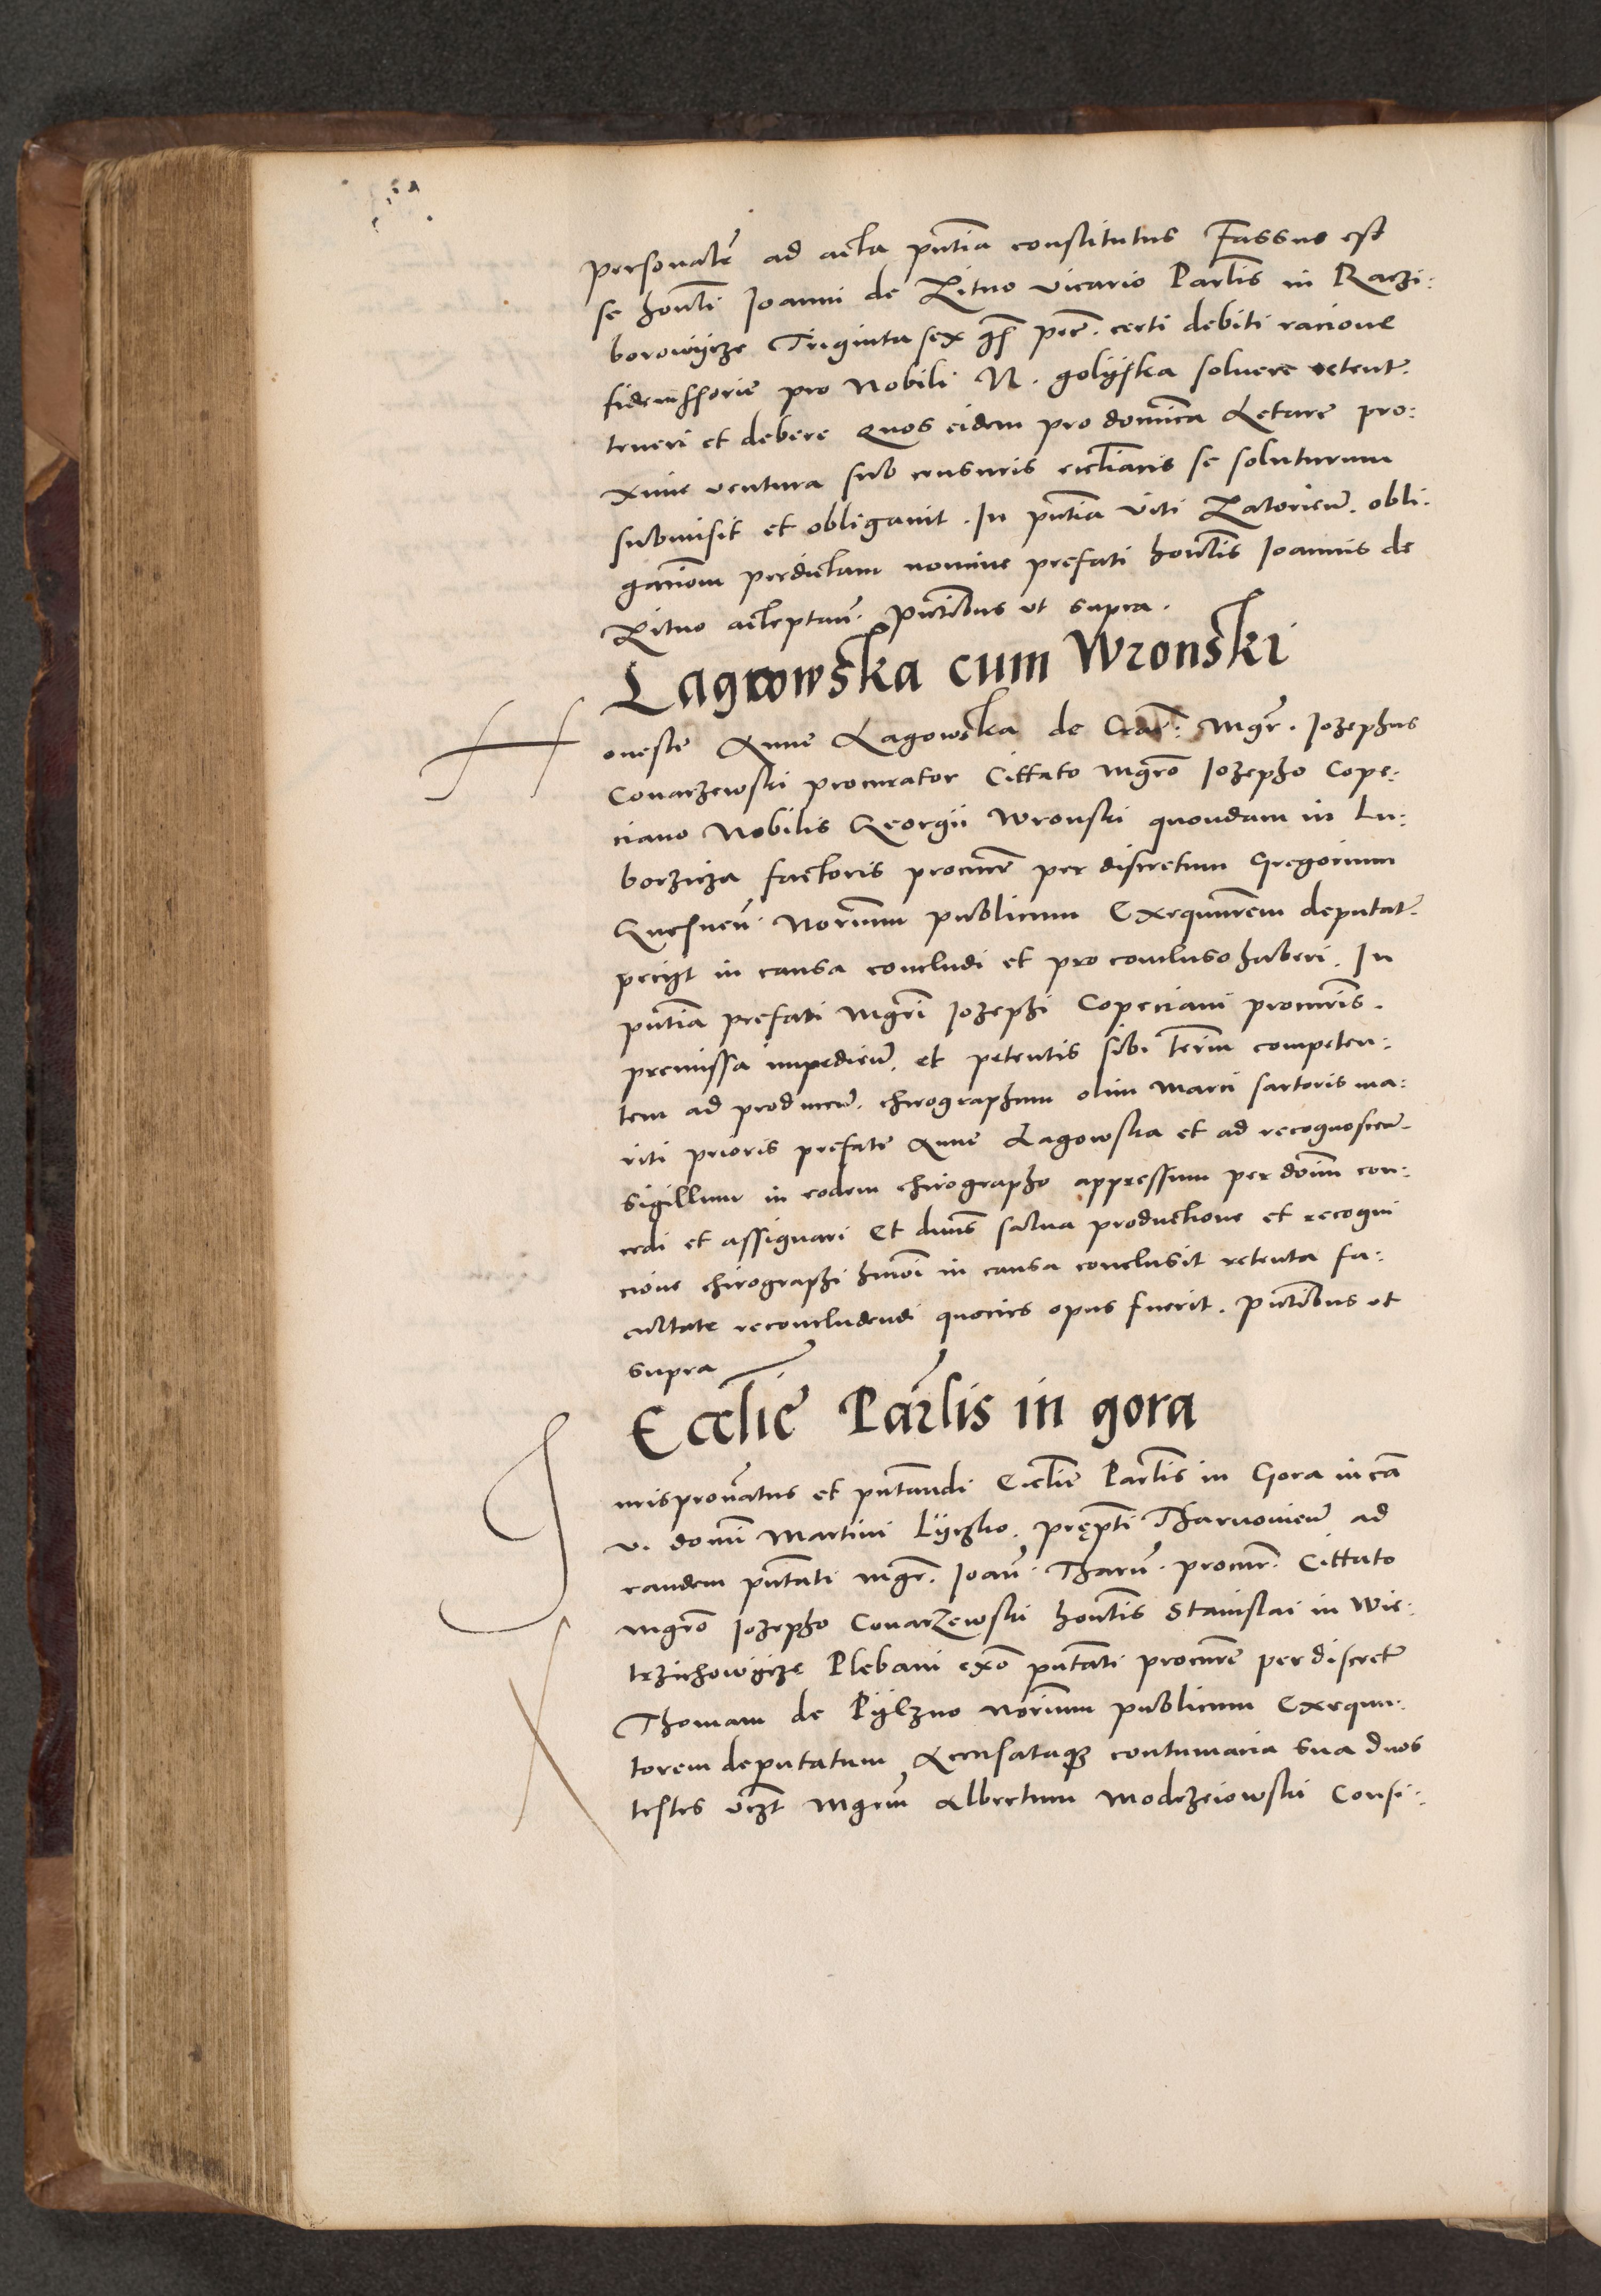 personalẽ ad acta pñtia constitutus Fassus est
se honlti Joanni de Xitno vicario Parlis in Raczi:
borowijcze Triginta sex gs̃ pec̃. certi debiti racione
fideiussorie pro Nobili N. golijska soluere
teneri et debere Quos eidem pro dominica Letare pro:
xime ventura sub censuris ecclíacis se soluturum
submisit et obligauit. In pñtia Viti Zatoricen̄. obli:
gationem predictam nomine prefati honlis Joannis de
Xitno acceptan̄. Pñtibus ut supra.
Lagowska cum Wronski
Honeste Anne Lagowska de Crac̃: Mgr̃. Jozephus
Conarzewski procurator Cittato mgrõ Jozepho Cope:
ciano Nobilis Georgii Wronski quondam in Lu:
borzicza factoris procur̃e per discretum Gregorium
Gnesnen̄. Norium publicum Exequutorem deputat̃.
petijt in causa concludi et pro concluso haberi. In
pñtia prefati Mgrĩ Jozephi Copeciani procuris.
premissa impedien̄. et petentis sibi terĩm competen:
tem ad producen̄. chirographum olim Marci sartoris ma:
riti prioris prefate Anne Lagowska et ad recognoscen̄.
sigillum in eodem chirographo appressum per doim̃ con:
cedi et assignari Et dnus salua productione et recogni
cione chirographi hmõi in causa conclusit retenta fa:
cultate reconcludendi quocies opus fuerit. Pñtibus ut
supra
Eccĺie Par̃lis in gora
Jurispronatus et pñtandi Ecclie Parlis in Gora in cã
v. domĩ Martini Lijczko. pręptĩ Tharnouien̄ ad
eandem pñtati mgr̃. Joañ. Tharn̄. procur̃. Cittato
mgrõ Jozepho Conarzewski honlis Stanislai in Wie:
trzichowijcze Plebani exõ pñtati procur̃e per discret̃
Thomam de Pijlzno norium publicum Exequu:
torem deputatum Accusataque contumacia sua duos
testes vzt Mgrum Albertum Modrzeiowski Consi: